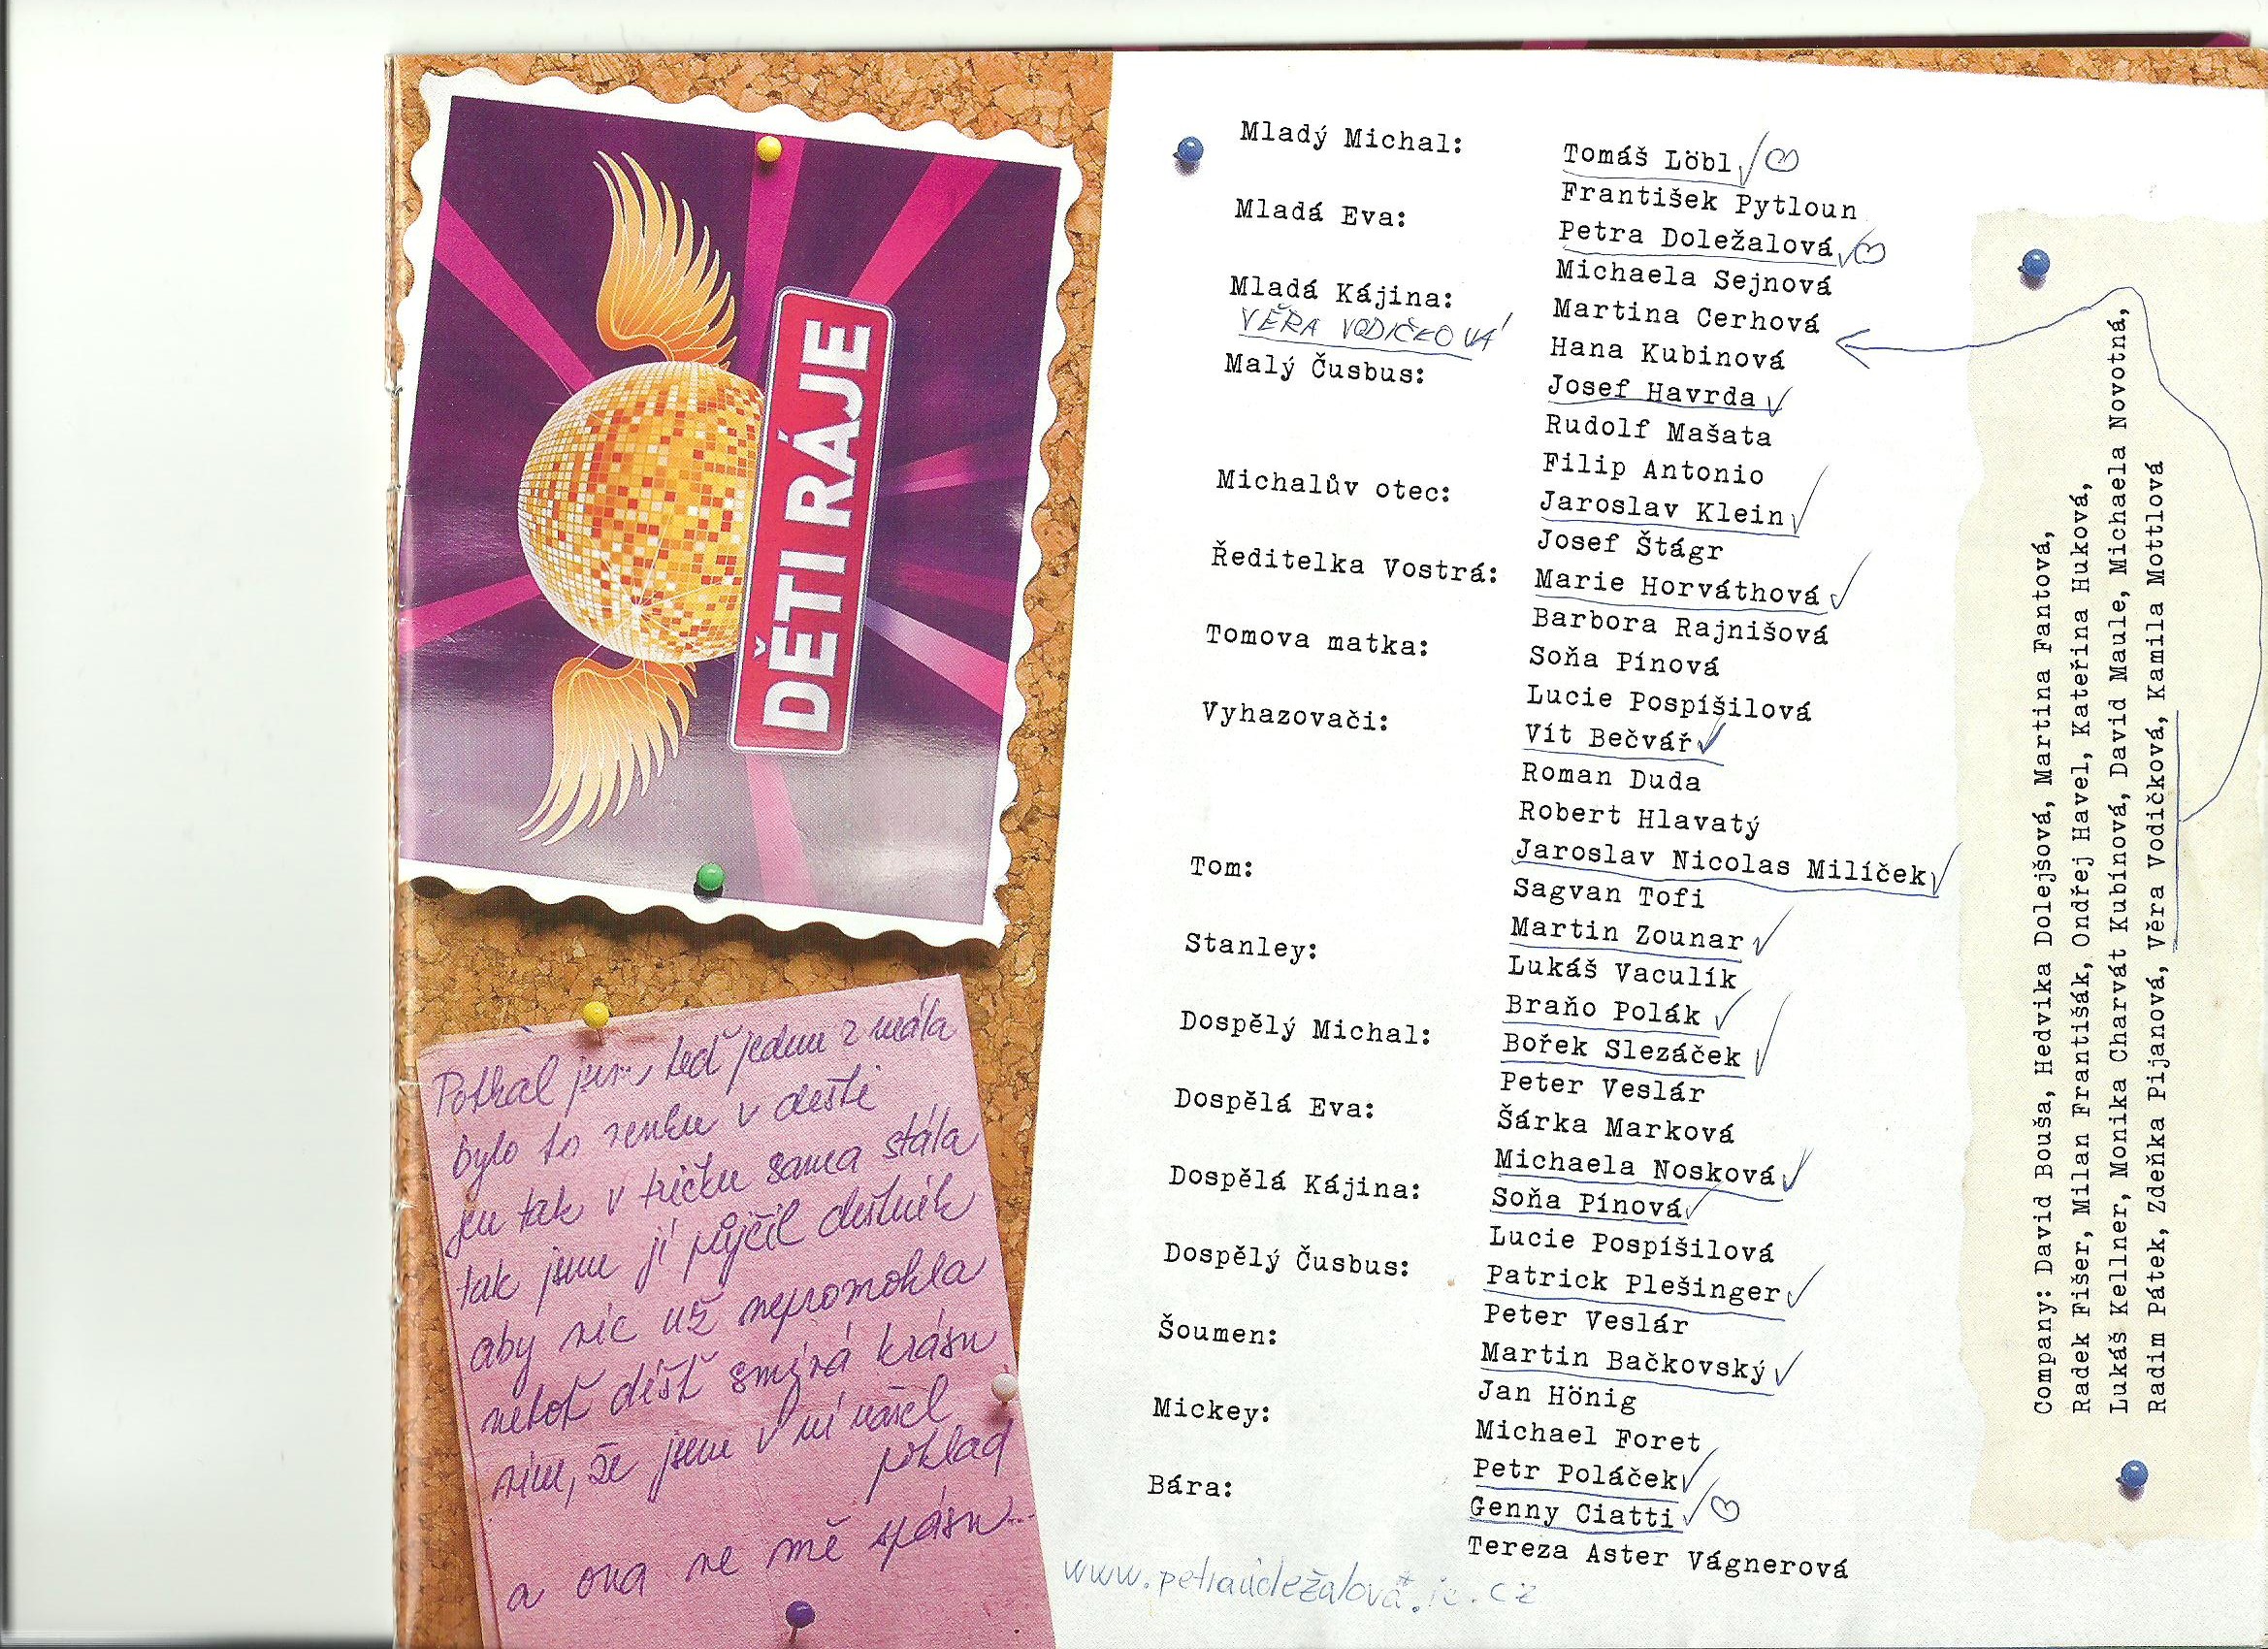 DĚTI RÁJE
Potkal jsem teď jednu z mála
bylo to venku v dešti
jen tak v tričku sama stála
tak jsem jí půjčil deštník
aby víc už nepromokla
neboť déšť smývá krásu
vím, že jsem v ní našel
poklad
a ona ve mě spásu...
Mladý Michal: Tomáš Löbl
František Pytloun
Mladá Eva: Petra Doležalová
Michaela Sejnová
Mladá Kájina: Martina Cerhová
VĚRA VODIČKOVÁ
Hana Kubinová
Malý Čusbus: Josef Havrda
Rudolf Mašata
Filip Antonio
Michalův otec: Jaroslav Klein
Josef Štágr
Ředitelka Vostrá: Marie Horváthová
Barbora Rajnišová
Tomova matka: Soňa Pínová
Lucie Pospíšilová
Vyhazovači: Vít Bečvář
Roman Duda
Robert Hlavatý
Tom: Jaroslav Nicolas Milíček
Sagvan Tofi
Martin Zounar
Stanley: Lukáš Vaculík
Braňo Polák
Dospělý Michal: Bořek Slezáček
Peter Veslár
Dospělá Eva: Šárka Marková
Michaela Nosková
Dospělá Kájina: Soňa Pínová
Lucie Pospíšilová
Dospělý Čusbus: Patrick Plešinger
Peter Veslár
Šoumen: Martin Bačkovský
Jan Hönig
Mickey: Michael Foret
Petr Poláček
Bára: Genny Ciatti
Tereza Aster Vágnerová
Company: David Bouša, Hedvika Dolejšová, Martina Fantová,
Radek Fišer, Milan Františák, Ondřej Havel, Kateřina Huková,
Lukáš Kellner, Monika Charvát Kubínová, David Maule, Michaela Novotná,
Radim Pátek, Zdeňka Pijanová, Věra Vodičková, Kamila Mottlová